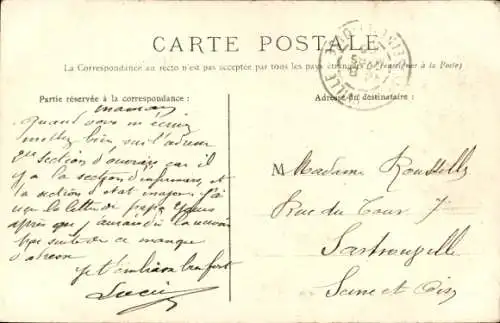 CARTE POSTALE
La Correspondance au recto n'est pas acceptée par tous les pays étrangers (Se renseigner à la Poste)
Partie réservée à la correspondance :
Adresse du destinataire :
maman
Quand vous m'écrivez
mettez bien sur l'adresse
2e section d'ouvriers car il
y a la section d'infirmiers, et
la section d'état major. J'ai
reçu la lettre de papa
après que j'aurais dû la recevoir
par suite de ce manque
d'adresse
Je t'embrasse bien fort
Lucien
M Madame Rousselle
Rue du Tour 7
Sartrouville
Seine et Oise